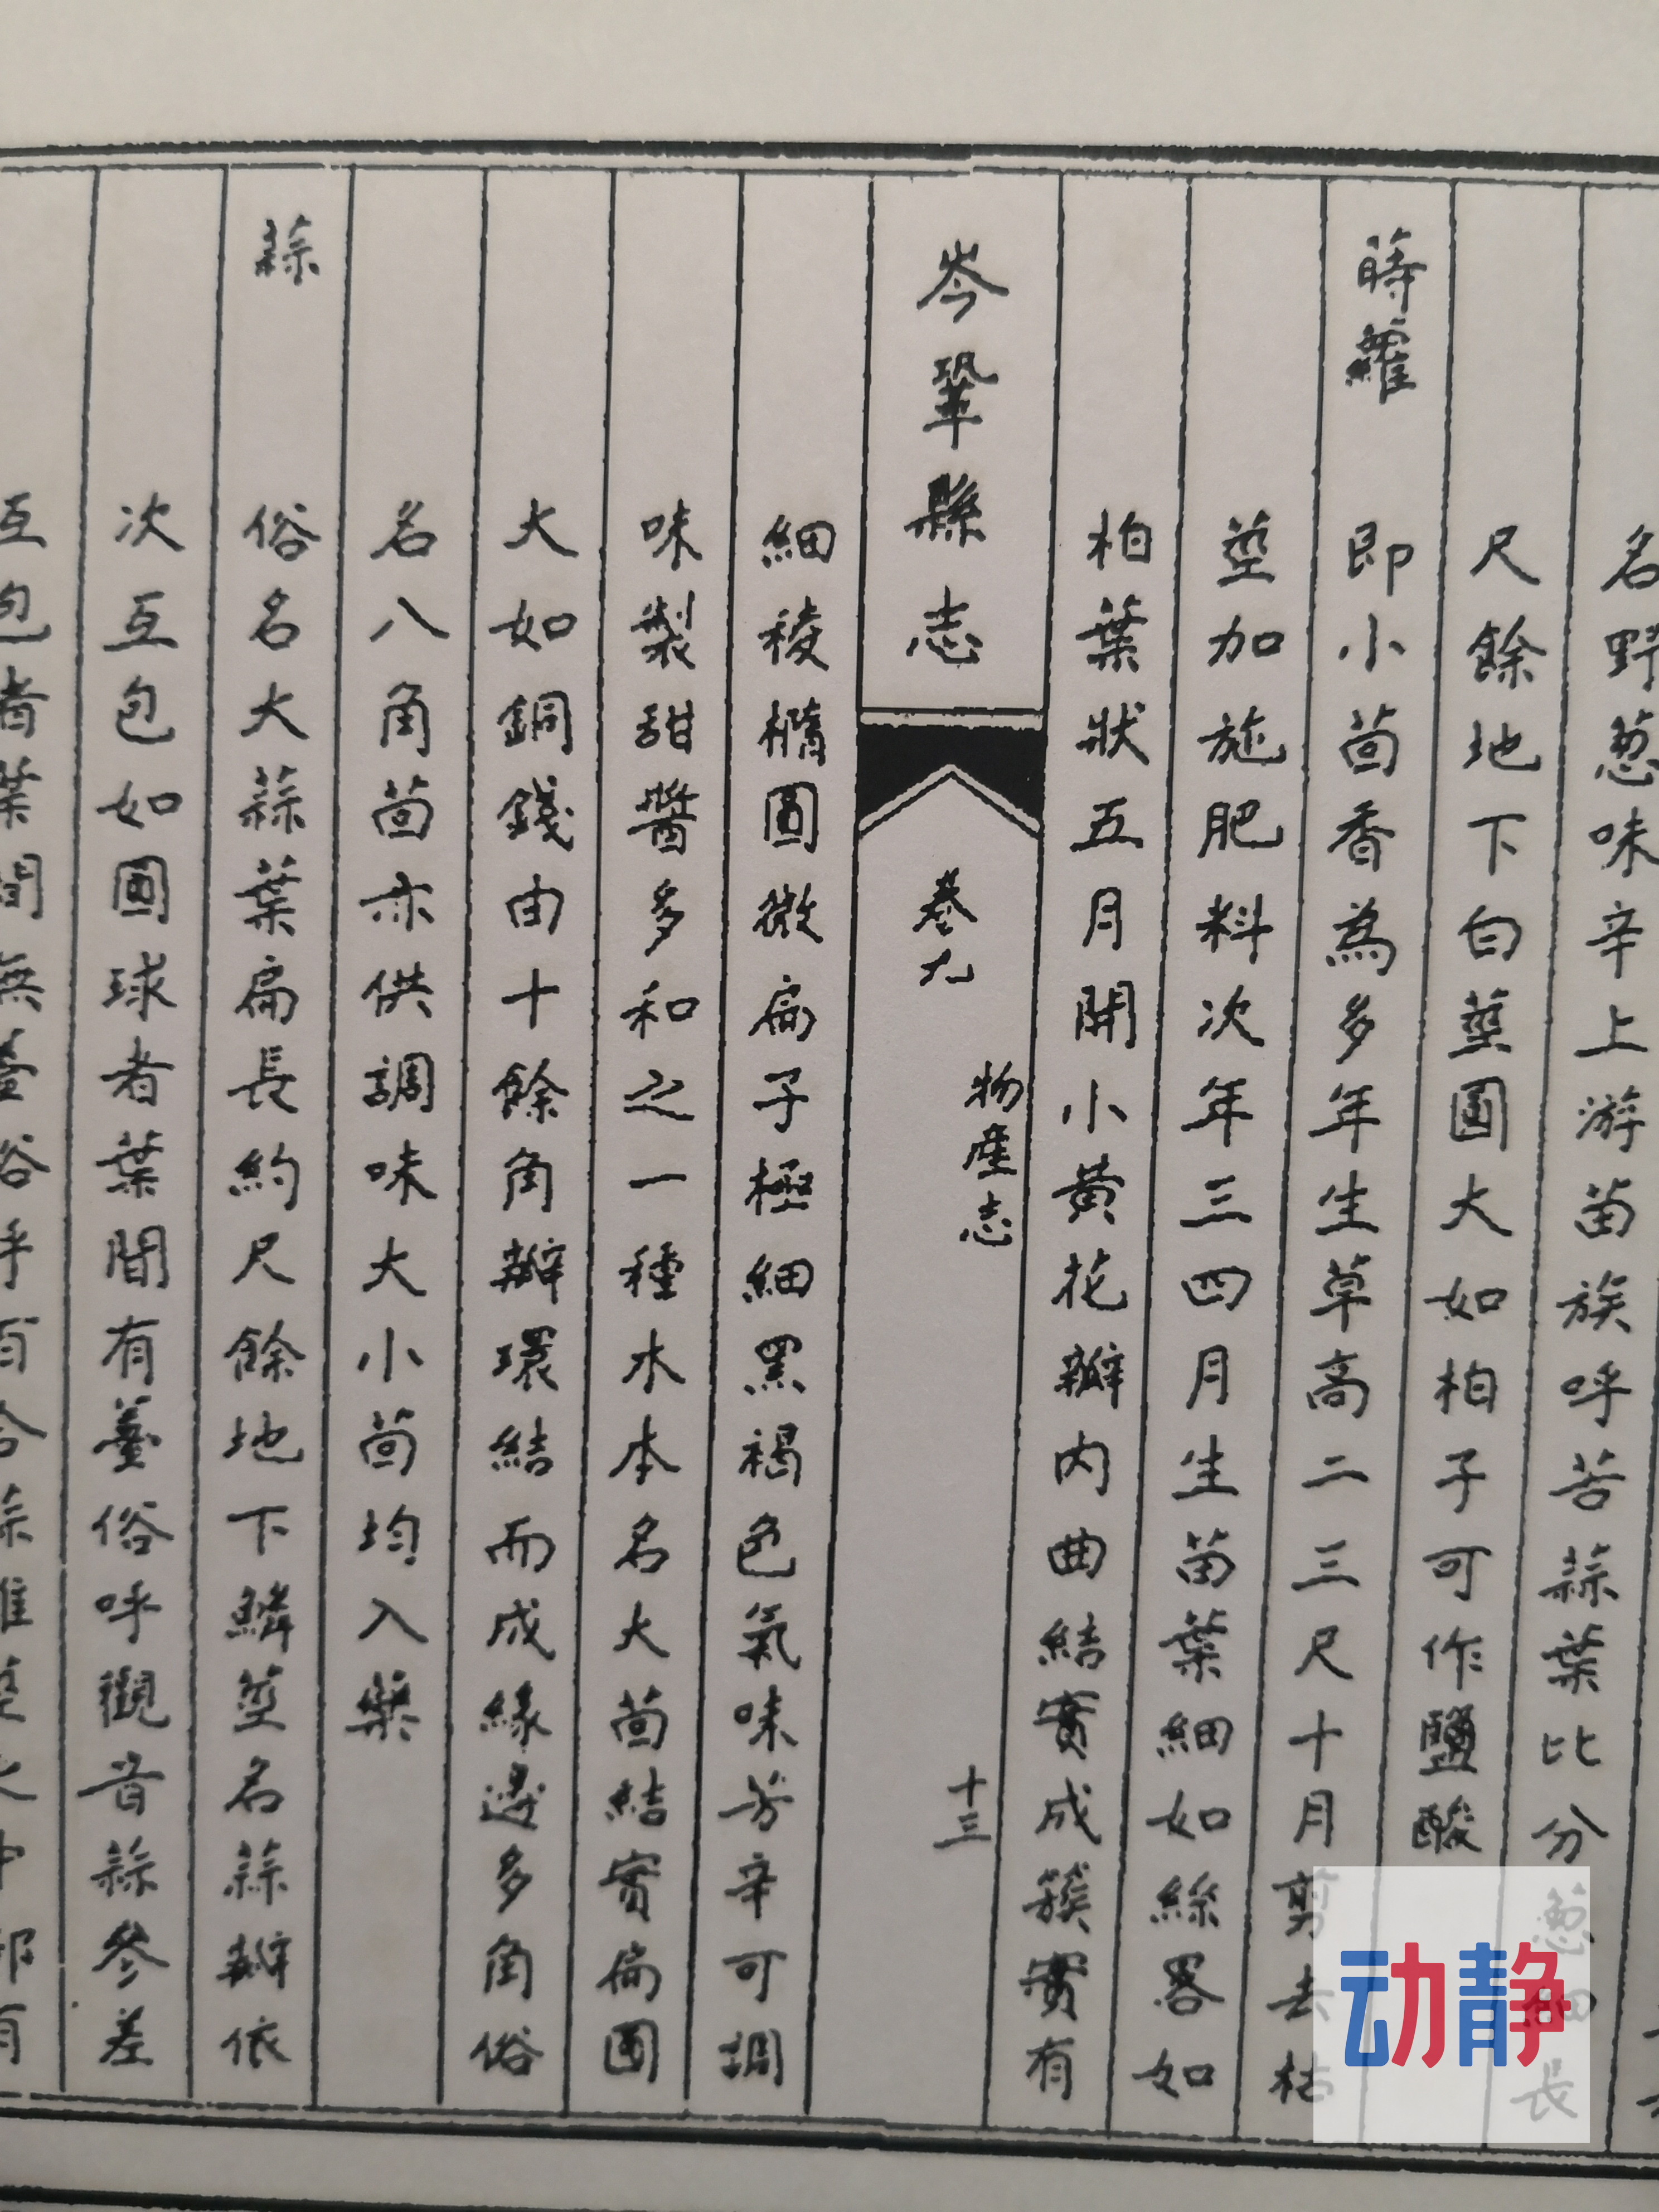 名野葱味辛上游苗族呼苦蒜葉比分葱細長
尺餘地下白莖圓大如柏子可作鹽酸
蒔蘿 即小茴香為多年生草高二三尺十月剪去枯
莖加施肥料次年三四月生苗葉細如絲畧如
柏葉狀五月開小黃花瓣内曲結實成簇實有
岑鞏縣志 卷九 物產志 十三
細稜橢圓微扁子極細黑褐色氣味芳辛可調
味製甜醬多和之一種木本名大茴結實扁圓
大如銅錢由十餘角瓣環結而成緣邊多角俗
名八角茴亦供調味大小茴均入藥
蒜 俗名大蒜葉扁長約尺餘地下鱗莖名蒜瓣依
次互包如圓球者葉間有薹俗呼觀音蒜參差
互包者葉間無薹俗呼百合蒜
动静